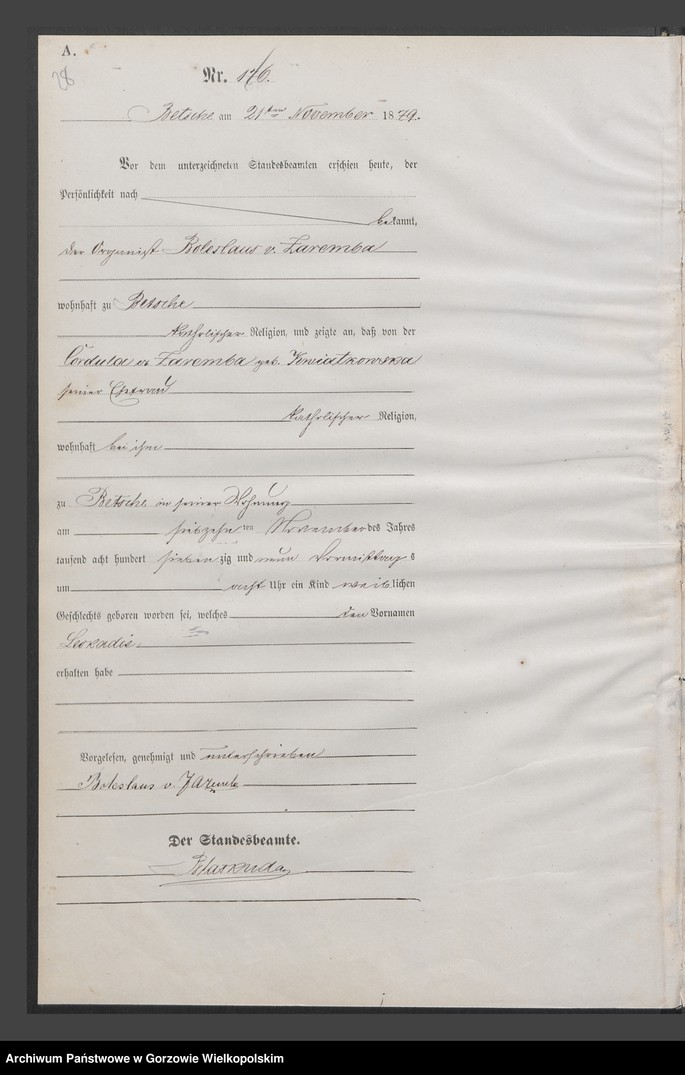 A.
28
Nr. 176.
Betsche am 21ten November 1879.
Vor dem unterzeichneten Standesbeamten erschien heute, der
Persönlichkeit nach
bekannt,
der Organist Boleslaus v. Zaremba
wohnhaft zu Betsche
katholischer Religion, und zeigte an, daß von der
Cordula v. Zaremba geb. Kwiatkowska
seiner Ehefrau
katholischer Religion,
wohnhaft bei ihm
zu Betsche in seiner Wohnung
am siebzehnten November des Jahres
tausend acht hundert siebenzig und neun Vormittags
um acht Uhr ein Kind weiblichen
Geschlechts geboren worden sei, welches den Vornamen
Leokadie
erhalten habe
Vorgelesen, genehmigt und unterschrieben
Boleslaus v.
Der Standesbeamte.
Archiwum Państwowe w Gorzowie Wielkopolskim